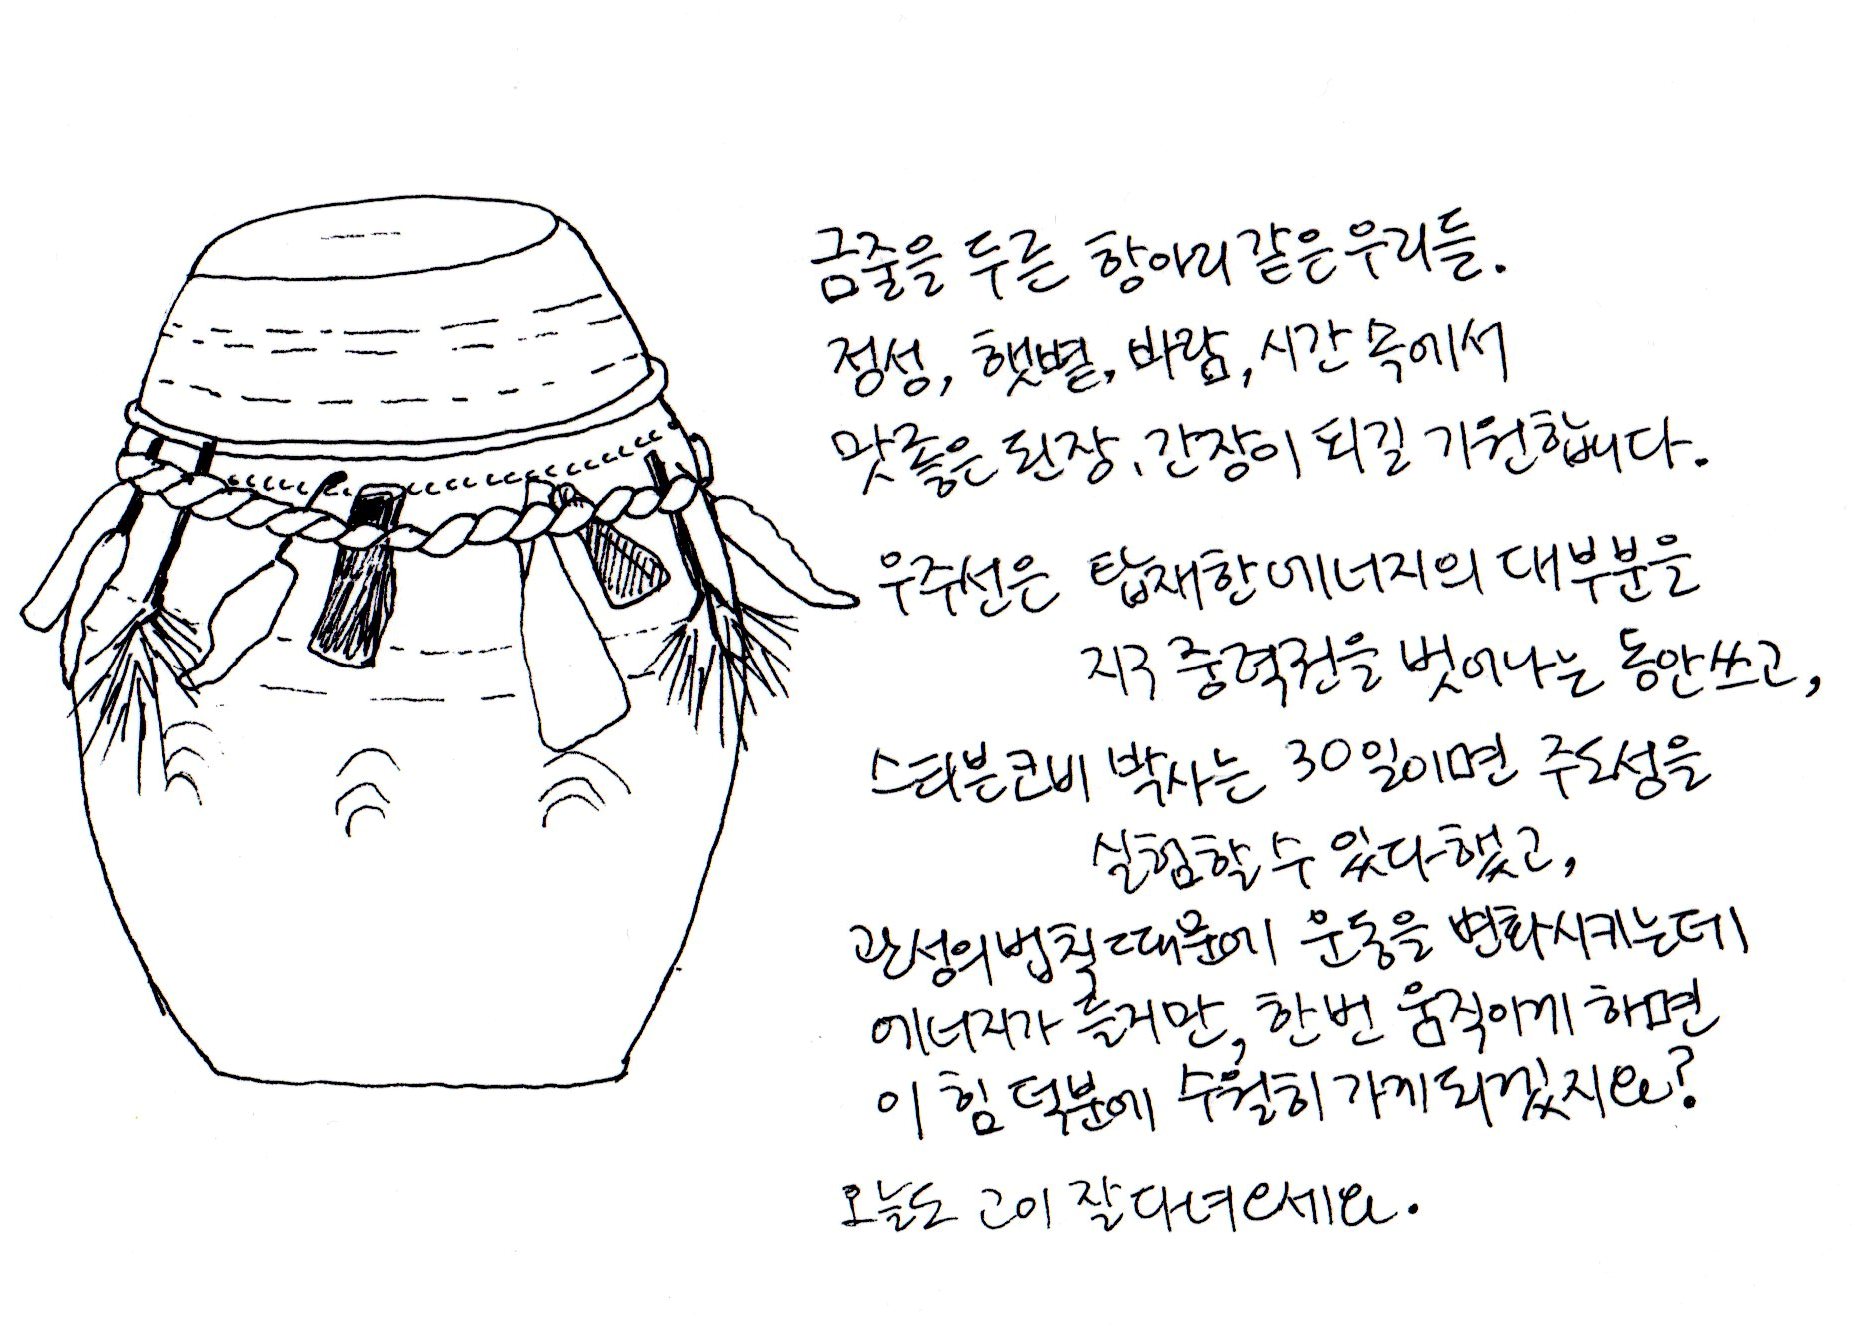 금줄을 두른 항아리 같은 우리들.
정성, 햇볕, 바람, 시간 속에서
맛좋은 된장, 간장이 되길 기원합니다.
우주선은 탑재한 에너지의 대부분을
지구 중력권을 벗어나는 동안 쓰고,
스티븐코비 박사는 30일이면 주도성을
실험할 수 있다 했고,
관성의 법칙 때문에 운동을 변화시키는데
에너지가 들지만, 한번 움직이게 하면
이 힘 덕분에 수월히 가게 되겠지요?
오늘도 고이 잘 다녀오세요.